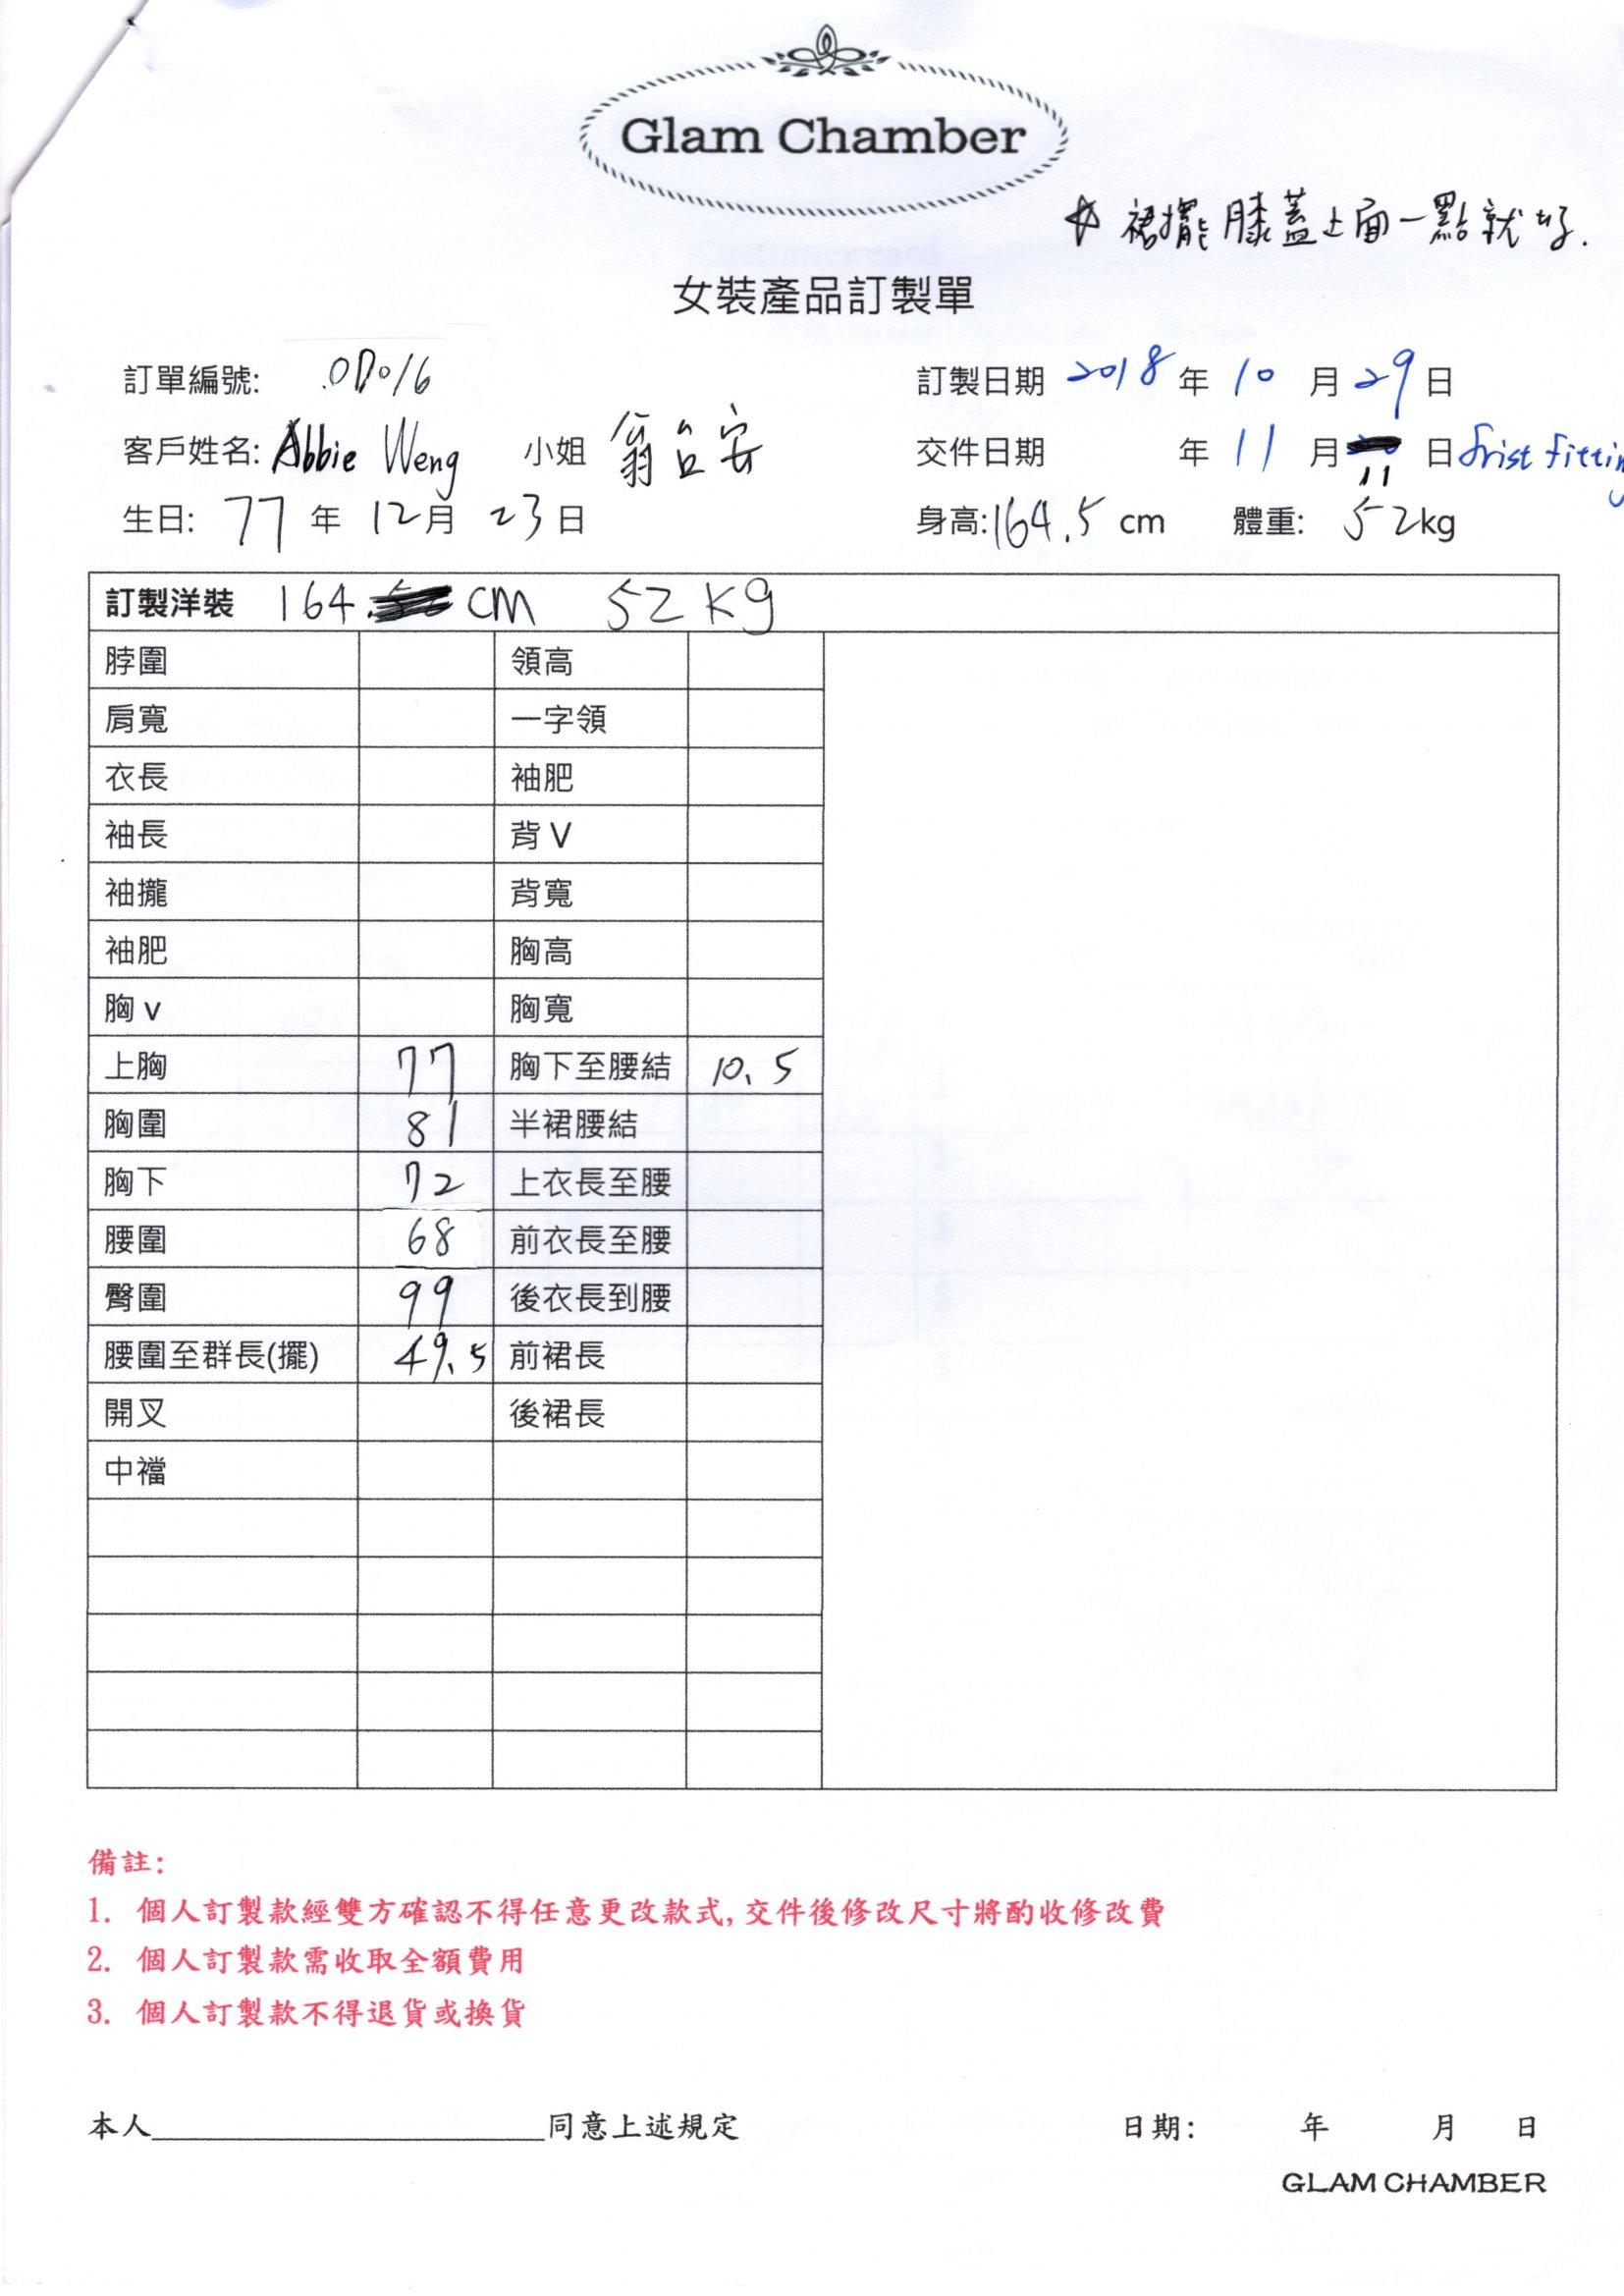 Glam Chamber
☆ 裙擺膝蓋上面一點就好.
女裝產品訂製單
訂單編號: 訂製日期 2018 年 10 月 29 日
客戶姓名: Abbie Weng 小姐 翁台安 交件日期 年 11 月 11 日 frist fitting
生日: 77 年 12 月 23 日 身高: 164.5 cm 體重: 52 kg
訂製洋裝 164. cm 52 kg
脖圍 領高
肩寬 一字領
衣長 袖肥
袖長 背 V
袖攏 背寬
袖肥 胸高
胸 v 胸寬
上胸 77 胸下至腰結 10.5
胸圍 81 半裙腰結
胸下 72 上衣長至腰
腰圍 68 前衣長至腰
臀圍 99 後衣長到腰
腰圍至群長(擺) 49.5 前裙長
開叉 後裙長
中襠
備註:
1. 個人訂製款經雙方確認不得任意更改款式,交件後修改尺寸將酌收修改費
2. 個人訂製款需收取全額費用
3. 個人訂製款不得退貨或換貨
本人 同意上述規定 日期: 年 月 日
GLAM CHAMBER